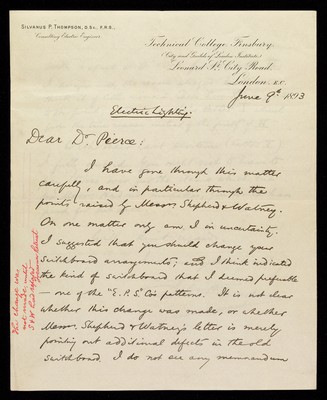 SILVANUS P. THOMPSON, D.Sc., F.R.S.,
Consulting Electric Engineer.
Technical College, Finsbury,
(City and Guilds of London Institute,)
Leonard St. City Road,
London, E.C.
June 9th 1893
Electric Lighting.
Dear Dr Pierce:
I have gone through this matter
carefully, and in particular through the
points raised by Messrs Shepherd & Watney.
On one matter only am I in uncertainty.
I suggested that you should change your
switchboard arrangements; and I think indicated
the kind of switchboard that I deemed preferable
— one of the "E.P.S." Co's patterns. It is not clear
whether this change was made, or whether
Messrs. Shepherd & Watney's letter is merely
pointing out additional defects in the old
switchboard. I do not see any memorandum
The change was
not made, until
S & W had